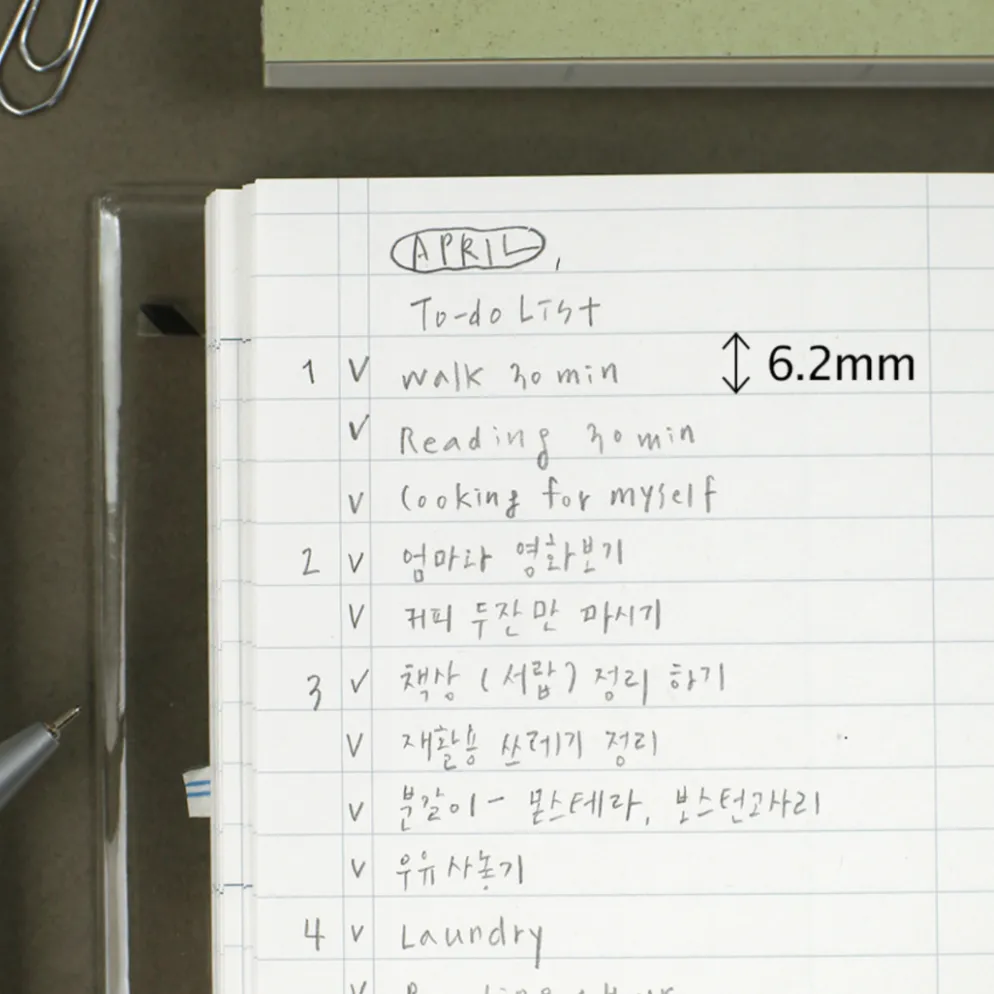 APRIL,
To-do List
1 V Walk 30 min 6.2mm
V Reading 30 min
V Cooking for myself
2 V 엄마랑 영화보기
V 커피 두잔만 마시기
3 V 책상 (서랍) 정리 하기
V 재활용 쓰레기 정리
V 분갈이 - 몬스테라, 보스턴고사리
V 우유 사놓기
4 V Laundry
V